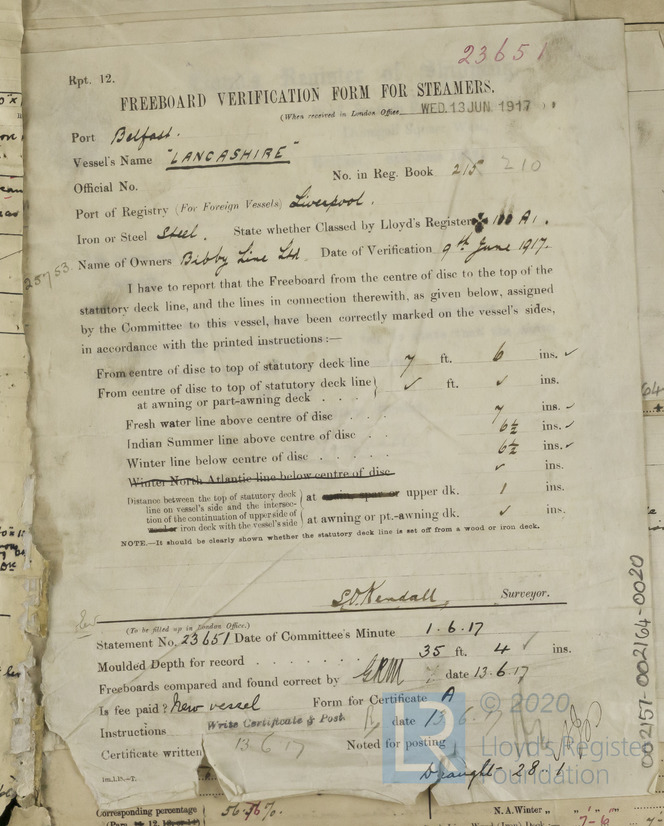 23651
Rpt. 12.
FREEBOARD VERIFICATION FORM FOR STEAMERS.
(When received in London Office WED. 13 JUN. 1917)
Port Belfast.
Vessel's Name "LANCASHIRE"
Official No. No. in Reg. Book 215 210
Port of Registry (For Foreign Vessels) Liverpool.
Iron or Steel Steel. State whether Classed by Lloyd's Register ✠ 100 A1.
25753. Name of Owners Bibby Line Ltd. Date of Verification 9th June 1917.
I have to report that the Freeboard from the centre of disc to the top of the
statutory deck line, and the lines in connection therewith, as given below, assigned
by the Committee to this vessel, have been correctly marked on the vessel's sides,
in accordance with the printed instructions:—
From centre of disc to top of statutory deck line 7 ft. 6 ins. ✓
From centre of disc to top of statutory deck line ✓ ft. ✓ ins.
at awning or part-awning deck . . .
Fresh water line above centre of disc . . . 7 ins. ✓
Indian Summer line above centre of disc . . 6½ ins. ✓
Winter line below centre of disc . . . . . 6½ ins. ✓
Winter North Atlantic line below centre of disc ✓ ins.
Distance between the top of statutory deck
line on vessel's side and the intersec-
tion of the continuation of upper side of
iron deck with the vessel's side
at upper dk. 1 ins.
at awning or pt.-awning dk. ✓ ins.
NOTE.—It should be clearly shown whether the statutory deck line is set off from a wood or iron deck.
Kendall, Surveyor.
(To be filled up in London Office.)
Statement No. 23651 Date of Committee's Minute 1.6.17
Moulded Depth for record . . . . . . . 35 ft. 4 ins.
Freeboards compared and found correct by date 13.6.17
Is fee paid? New vessel Form for Certificate A
Instructions Write Certificate & Post date 13.6.17
Certificate written 13 6 17 Noted for posting
Draught 28-1
1m.1.15.—T.
Corresponding percentage 56.
N.A. Winter „
7-6
002157-002164-0020
© 2020
Lloyd's Register
Foundation